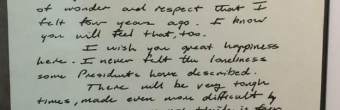 of wonder and respect that I
felt four years ago. I know
you will feel that, too.
I wish you great happiness
here. I never felt the loneliness
some Presidents have described.
There will be very tough
times, made even more difficult by